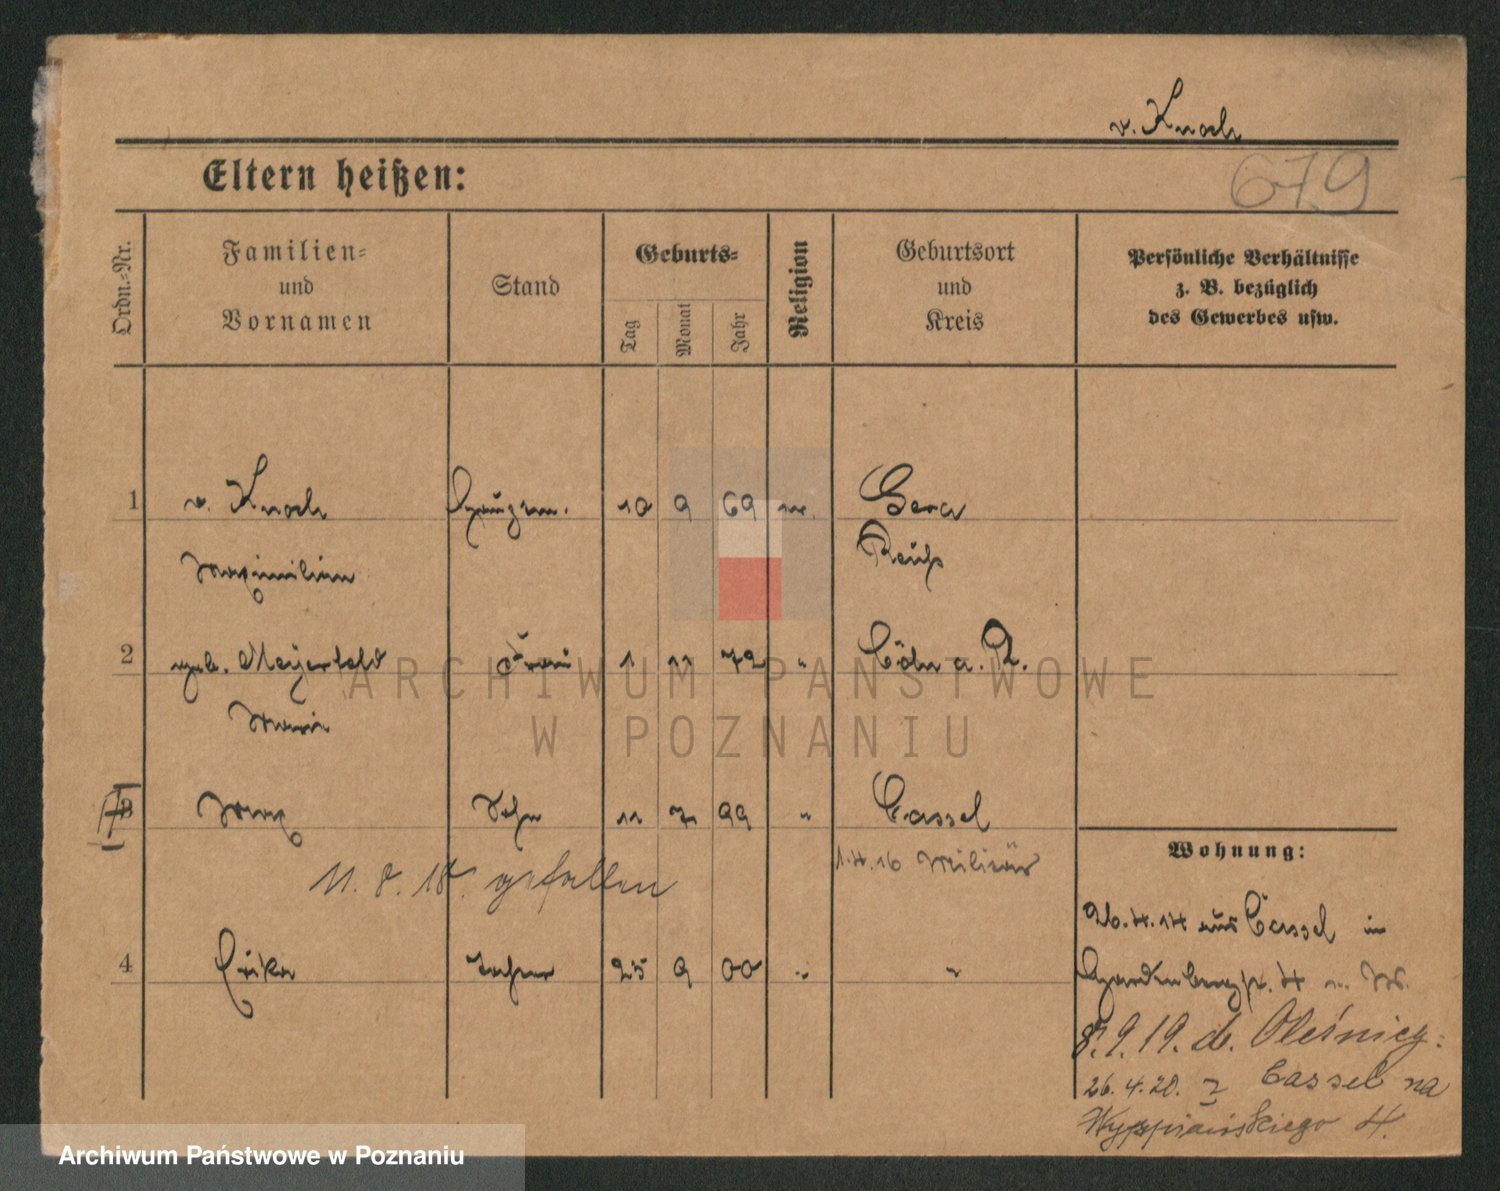 v. Knoch
Eltern heißen:
679
Ordn.-Nr.
Familien-
und
Vornamen
Stand
Geburts-
Tag
Monat
Jahr
Religion
Geburtsort
und
Kreis
Persönliche Verhältnisse
z. B. bezüglich
des Gewerbes usw.
1 v. Knoch Hauptm. 10 9 69 Gera
Maximilian Reuß
2 geb. Meyerfeld Frau 1 11 72 " Cöln a. R.
Marie
ARCHIWUM PAŃSTWOWE
W POZNANIU
3 Max Sohn 11 7 99 " Cassel
Wohnung:
1.4.16 Militär
11.8.18. gefallen
26.4.14 aus Cassel in
4 Erika Tochter 25 9 00 " "
Hardenbergstr. 4
8.9.19. do Oleśnicy
26.4.20. z Cassel na
Wyspiańskiego 4.
Archiwum Państwowe w Poznaniu